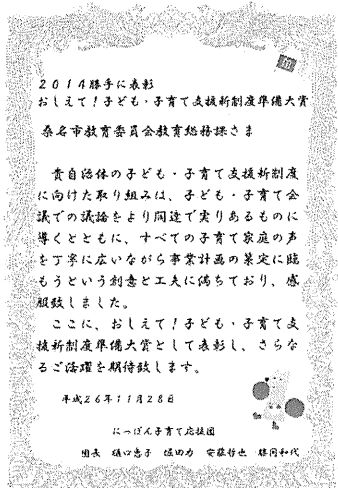 2014勝手に表彰
おしえて！子ども・子育て支援新制度準備大賞
桑名市教育委員会教育総務課さま
貴自治体の子ども・子育て支援新制度
に向けた取り組みは、子ども・子育て会
議での議論をより闊達で実りあるものに
導くとともに、すべての子育て家庭の声
を丁寧に広いながら事業計画の策定に臨
もうという創意と工夫に満ちており、感
服致しました。
ここに、おしえて！子ども・子育て支
援新制度準備大賞として表彰し、さらな
るご活躍を期待致します。
平成26年11月28日
にっぽん子育て応援団
団長 樋口恵子 堀田力 安藤哲也 勝間和代